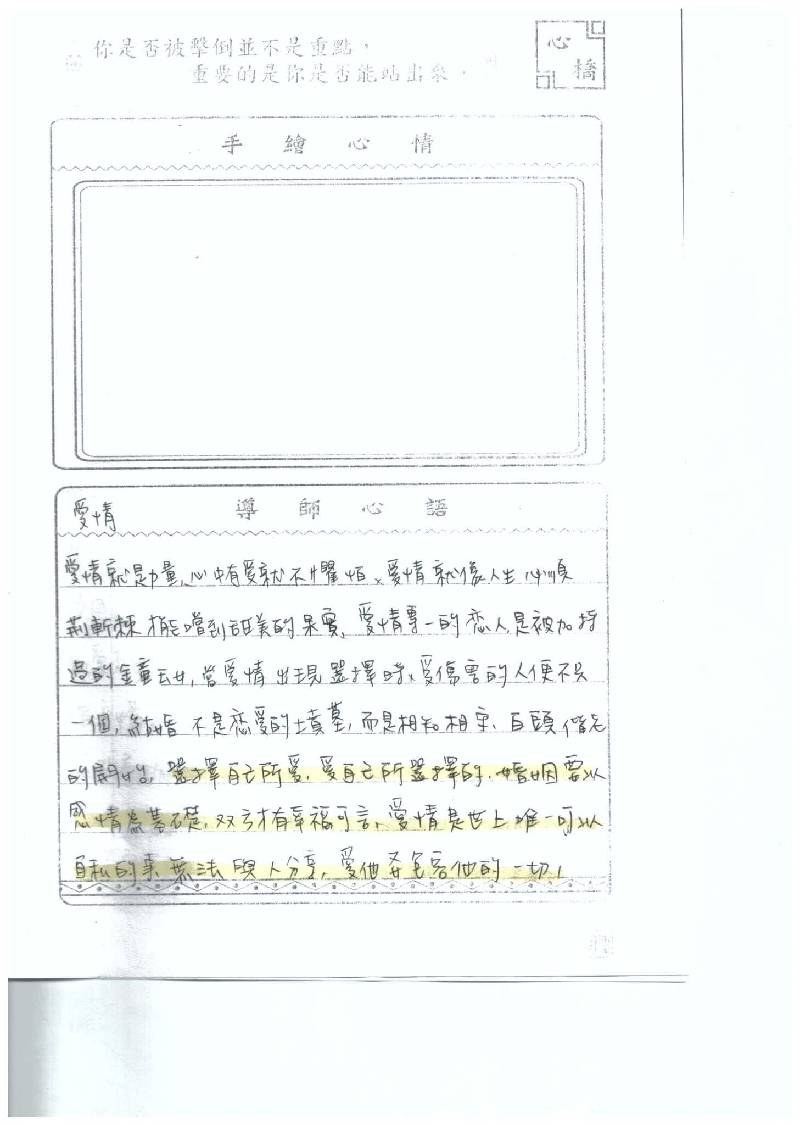 你是否被擊倒並不是重點，
重要的是你是否能站出來，
心橋
手繪心情
愛情
導師心語
愛情就是力量，心中有愛就不懼怕、愛情就像人生必須
荊斬棘才能嚐到甜美的果實，愛情專一的戀人，是被加持
過的金童玉女，當愛情出現選擇時、受傷害的人便不只
一個，結婚不是恋愛的墳墓，而是相知相守、白頭偕老
的開始，選擇自己所愛，愛自己所選擇的，婚姻要以
感情為基礎，双方才有幸福可言、愛情是世上唯一可以
自私的事無法與人分享，愛他要包容他的一切！